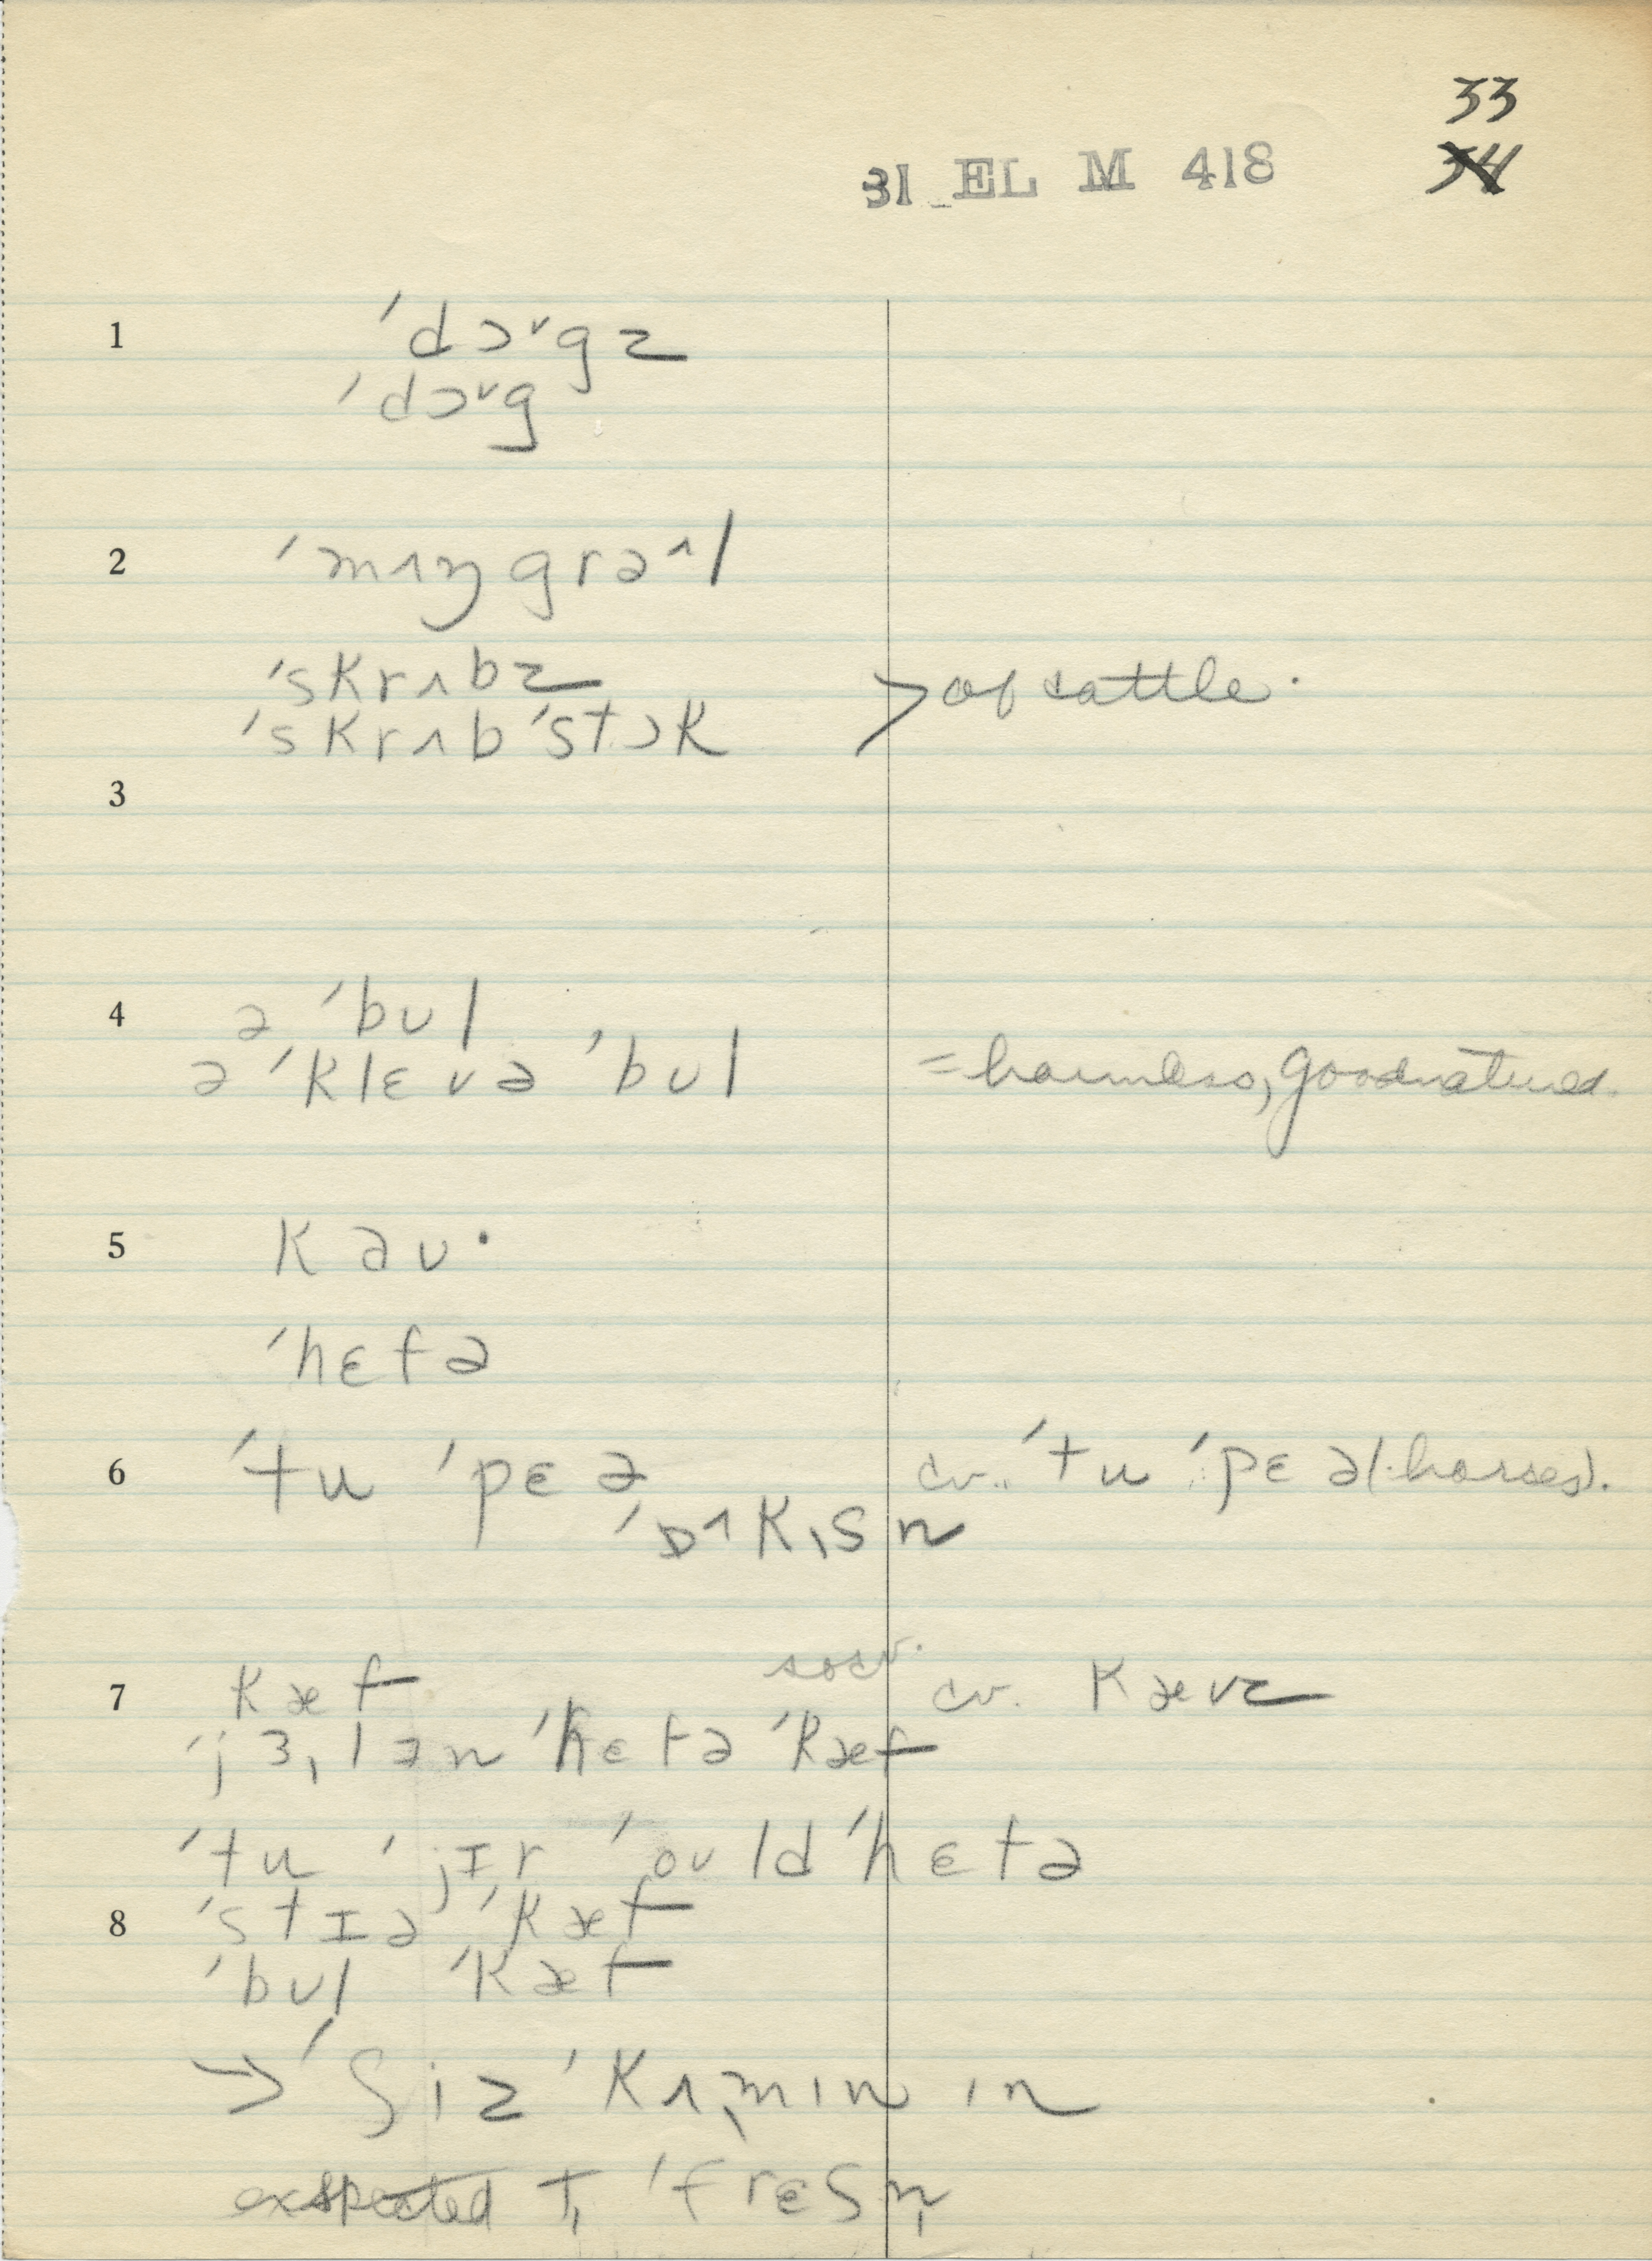 33
34
31 EL M 418
1 ˈdɔᵛgz
ˈdɔᵛg
2 ˈmʌŋgrəˆl
ˈskrʌbz
ˈskrʌbˈstɔk > of cattle.
3
4 ə ˈbʊl
ə ˈklɛvə ˈbʊl = harmless, goodnatured.
5 kaʊ·
ˈhɛfə
6 ˈtu ˈpɛə cv. ˈtu ˈpɛə (horses).
ˈɒ˄kˌsn
7 kæf cv. kævz
ˈjɜˌlən ˈhɛfə ˈkæf
ˈtu ˈjɪr ˈoʊld ˈhɛfə
8 ˈstɪə ˈkæf
ˈbʊl ˈkæf
→ ˈʃiz ˈkʌˌmɪn ɪn
expected T, ˈfrɛʃn̩